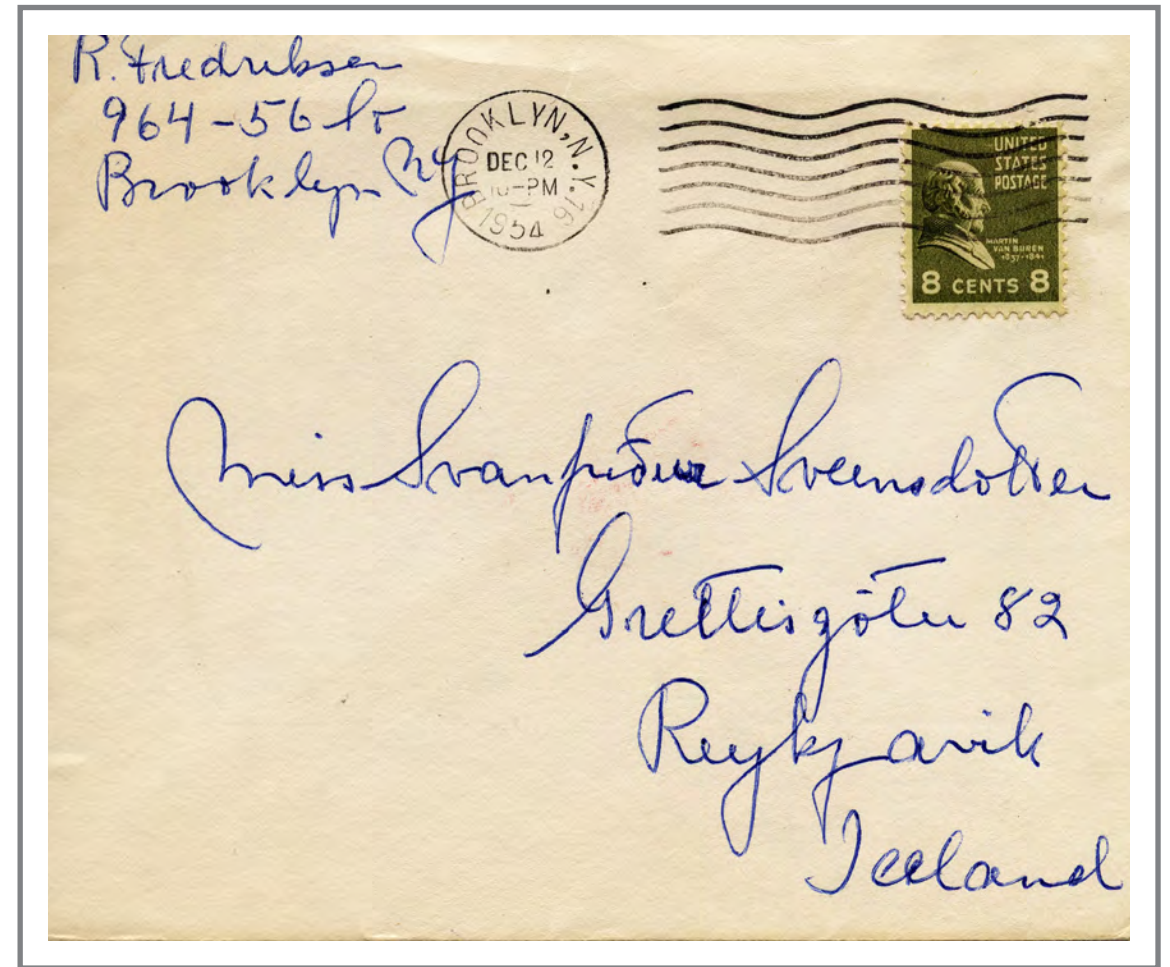 R. Fredriksen
964-56 St
Brooklyn NY
BROOKLYN, N.Y. 16
DEC 12
10-PM
1954
UNITED
STATES
POSTAGE
MARTIN
VAN BUREN
1837-1841
8 CENTS 8
Miss Svanfriður Sveinsdotter
Grettisgötu 82
Reykjavik
Iceland